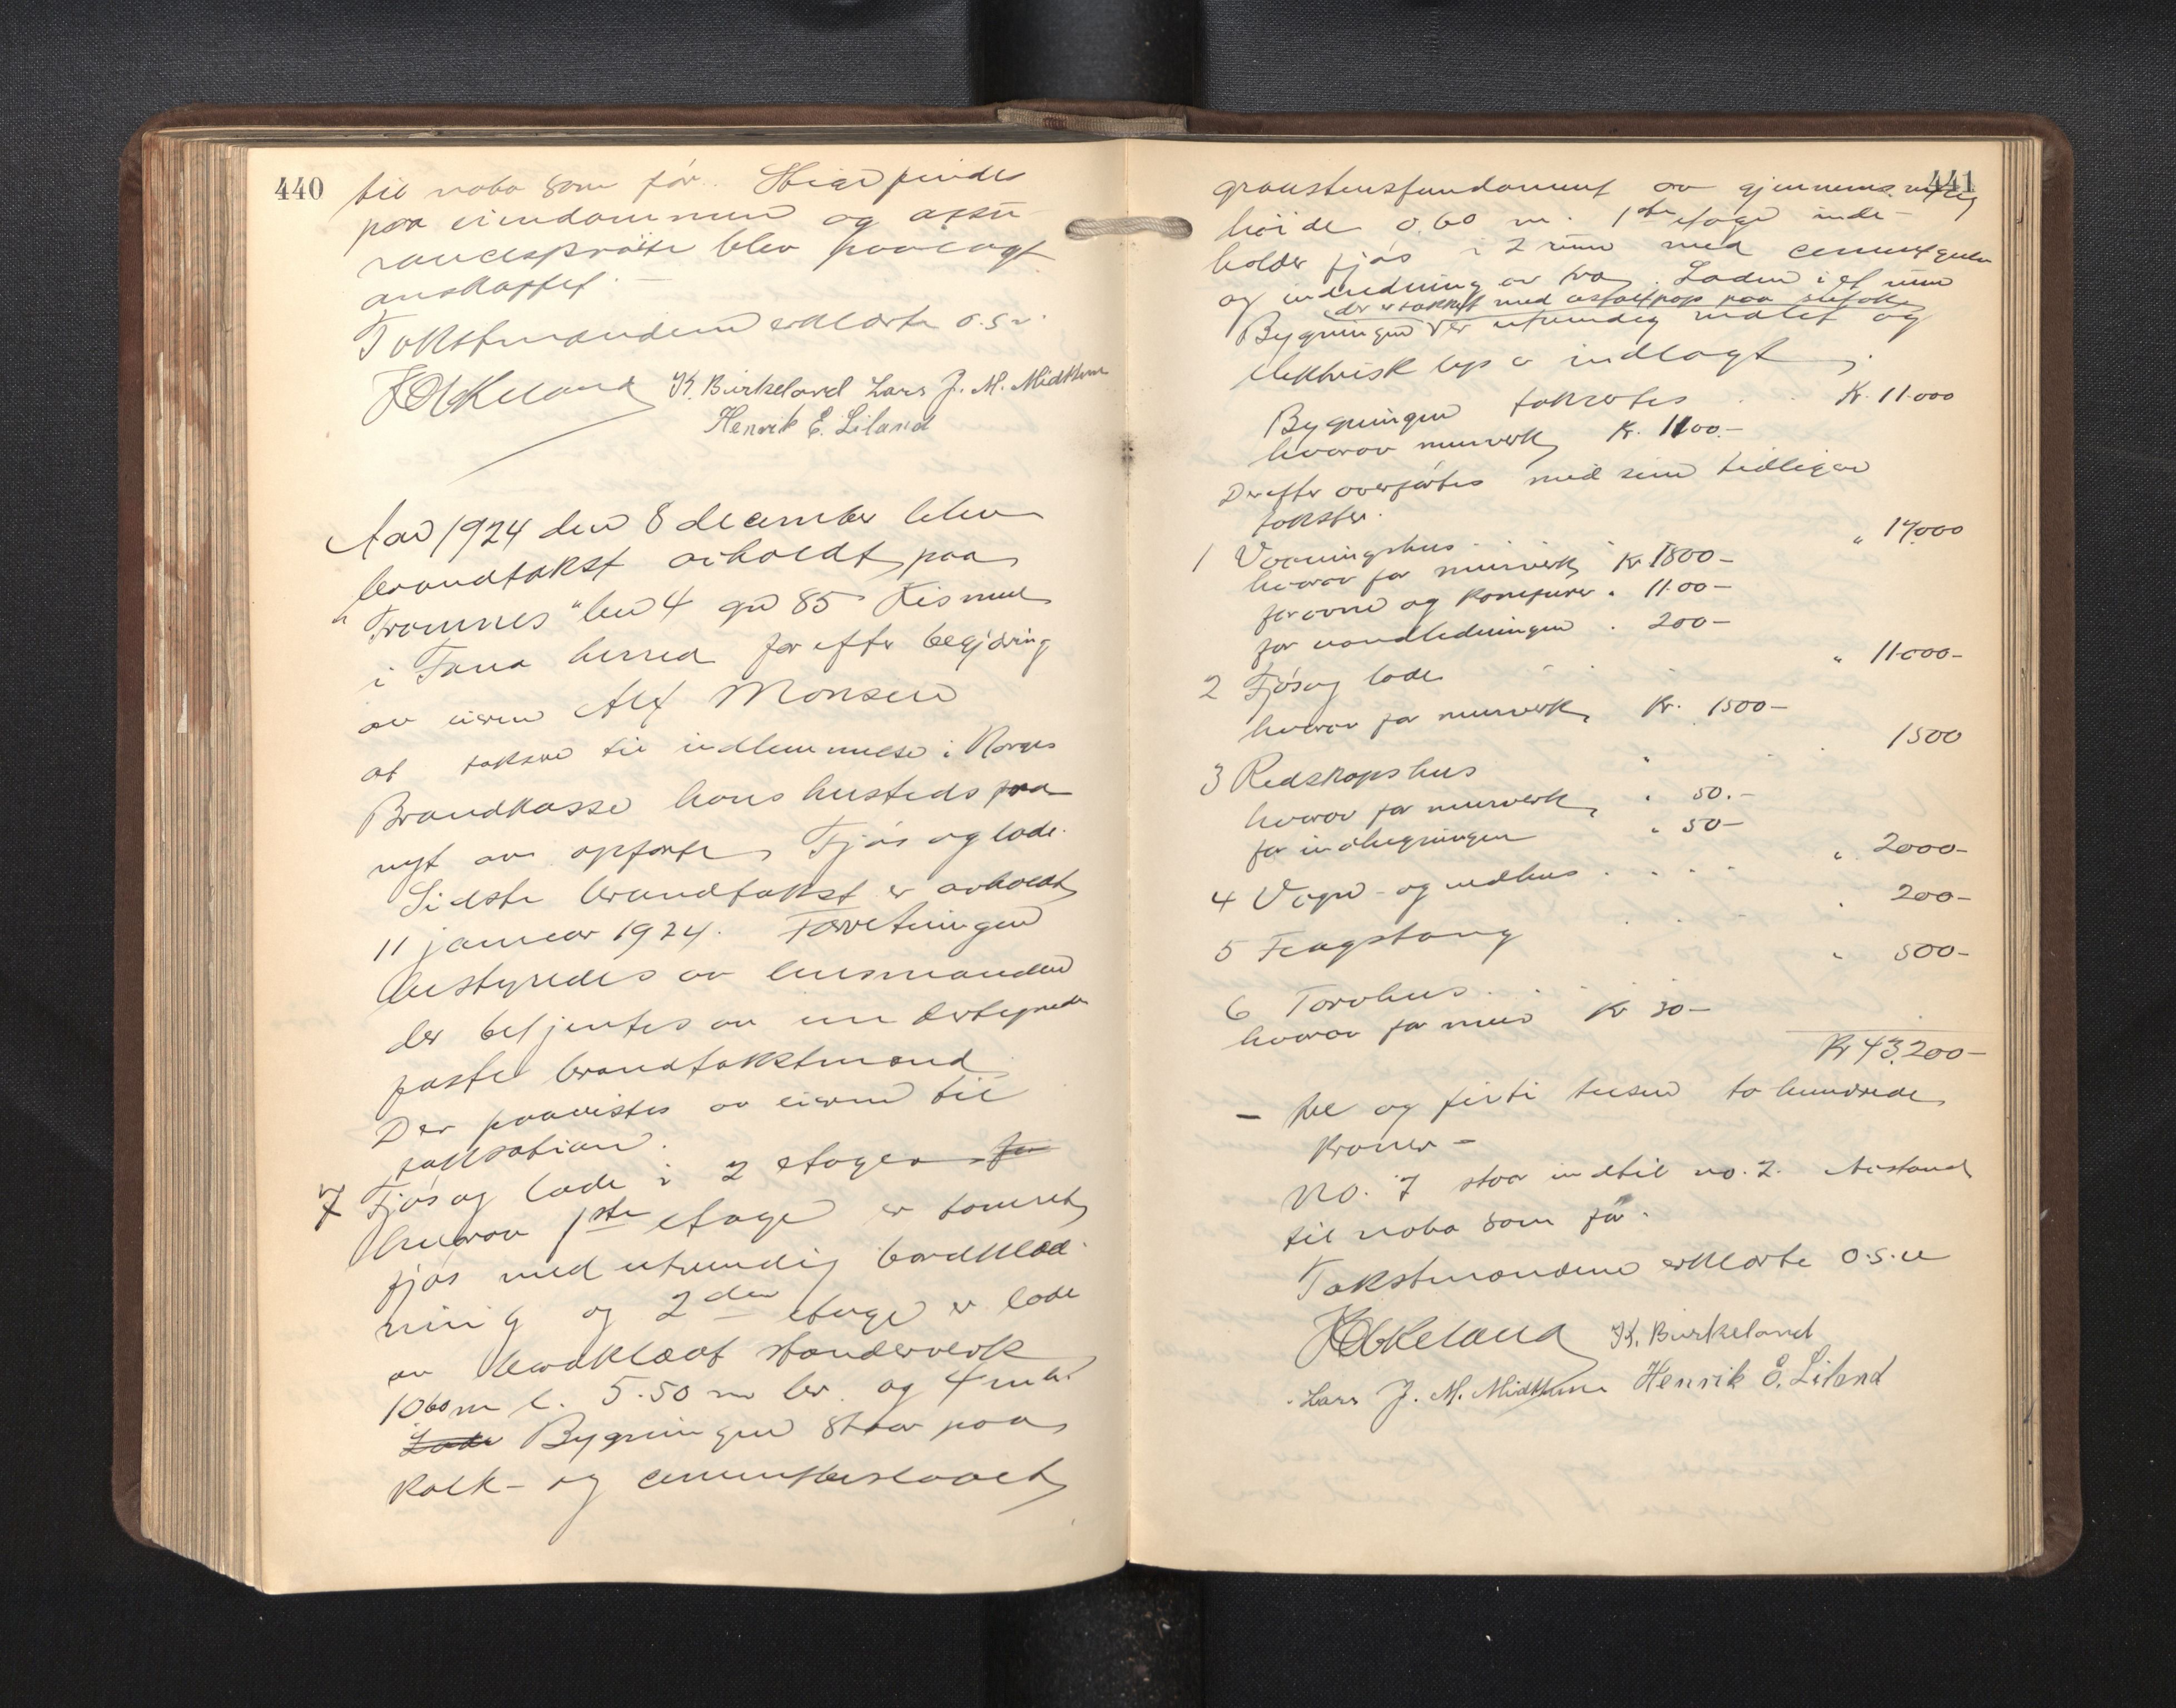 440
til nabo som før. Stige findes
paa eiendommen og assu-
rancesprøite blev paalagt
anskaffet. —
Takstmændene erklærte o.s.v.
K. Birkeland Lars J. M. Midttun
Henrik E. Liland
Aar 1924 den 8 december blev
brandtakst avholdt paa
"Tromnes" bn 4 gn 85
i Fana herred for efter begjæring
av eieren Alf Monsen
at taksere til indlemmelse i Norges
Brandkasse hans husteds paa
nyt av opførte Fjøs og lade.
Sidste brandtakst er avholdt
11 januar 1924. Forretningen
bestyredes av lensmanden
der betjentes av undertegnede
faste brandtakstmænd
Der paavistes av eieren til
taksation.
7 Fjøs og lade i 2 etager
hvorav 1ste etage er tømret
fjøs med utvendig bordklæd-
ning og 2den etage er lade
av bordklædt stænderverk
10.60 m l. 5.50 m br. og 4 m h.
Lade Bygningen staar paa
kalk- og cementbeslaaet
441
graastensfundament av gjennemsnitlig
høide 0.60 m. 1ste etage inde-
holder fjøs i 2 rum med cementgulv
og indredning av træ. Laden i et rum
der er tækket med asfaltpap paa
Bygningen er utvendig malet og
elektrisk lys er indlagt.
Bygningen takseres . . Kr. 11.000
hvorav murverk Kr. 1100.-
Derefter overførtes med sine tidligere
takster.
1 Vaaningshus . . . " 17.000
hvorav for murverk Kr. 1800-
for ovne og komfurer " 1100-
for vandledningen " 200-
2 Fjøs og lade . . . " 11.000-
hvorav for murverk Kr. 1500-
3 Redskapshus " 1500
hvorav for murverk " 50.-
for indbygningen " 50-
4 Vogn- og vedhus . . . . " 2000-
5 Flagstang . . . " 200-
6 Torvhus . . . " 500-
hvorav for mur Kr 30-
Kr 43.200-
- tre og førti tusen to hundrede
kroner -
No. 7 staar indtil no. 2. Avstand
til nabo som før.
Takstmændene erklærte o.s.v
K. Birkeland
Lars J. M. Midttun Henrik E. Liland